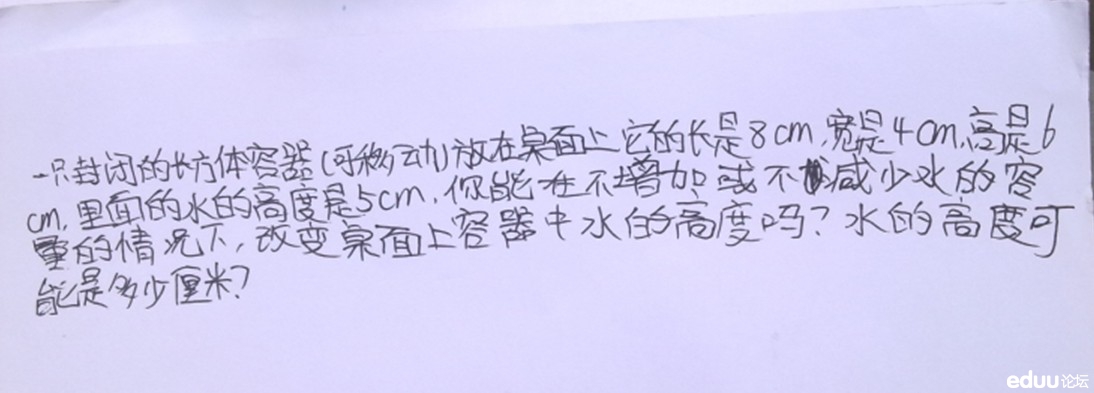 一只封闭的长方体容器(可移动)放在桌面上它的长是8cm,宽是4cm,高是6
cm,里面的水的高度是5cm,你能在不增加或不减少水的容
量的情况下,改变桌面上容器中水的高度吗?水的高度可
能是多少厘米?
eduu论坛